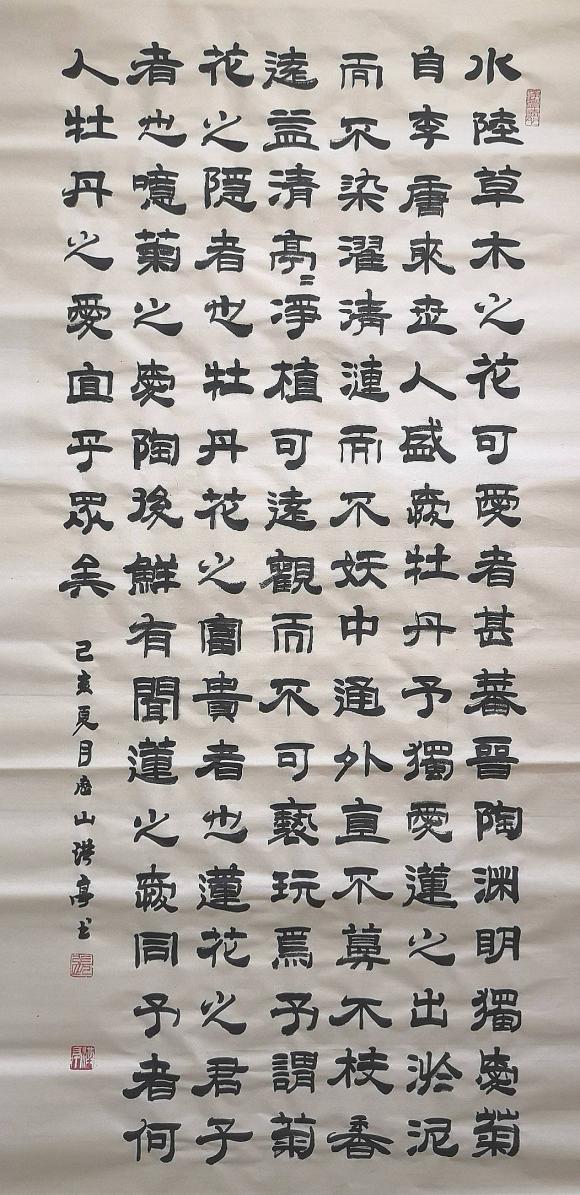 水陸草木之花可愛者甚蕃晉陶渊明獨愛菊
自李唐來世人盛愛牡丹予獨愛蓮之出淤泥
而不染濯清漣而不妖中通外直不蔓不枝香
遠益清亭〻淨植可遠觀而不可褻玩焉予謂菊
花之隱者也牡丹花之富貴者也蓮花之君子
者也噫菊之愛陶後鮮有聞蓮之愛同予者何
人牡丹之愛宜乎眾矣
己亥夏月山亭书